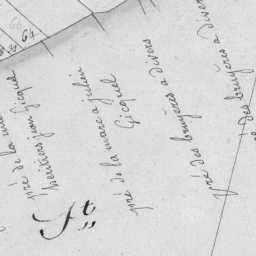 64
pré de la
heritiers jean Gicquel
pré de la marre a julien
Gicquel
pré des bruyères a divers
des bruyères a divers
St